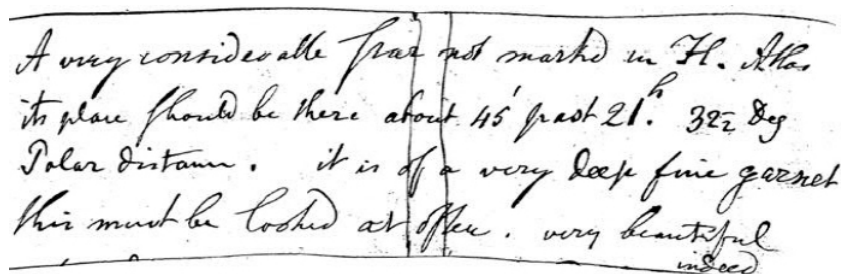 A very considerable star not marked in Fl. Atlas
its place should be there about 45' past 21.h 32½ Deg
Polar distance. it is of a very deep fine garnet
this must be looked at often. very beautiful
indeed